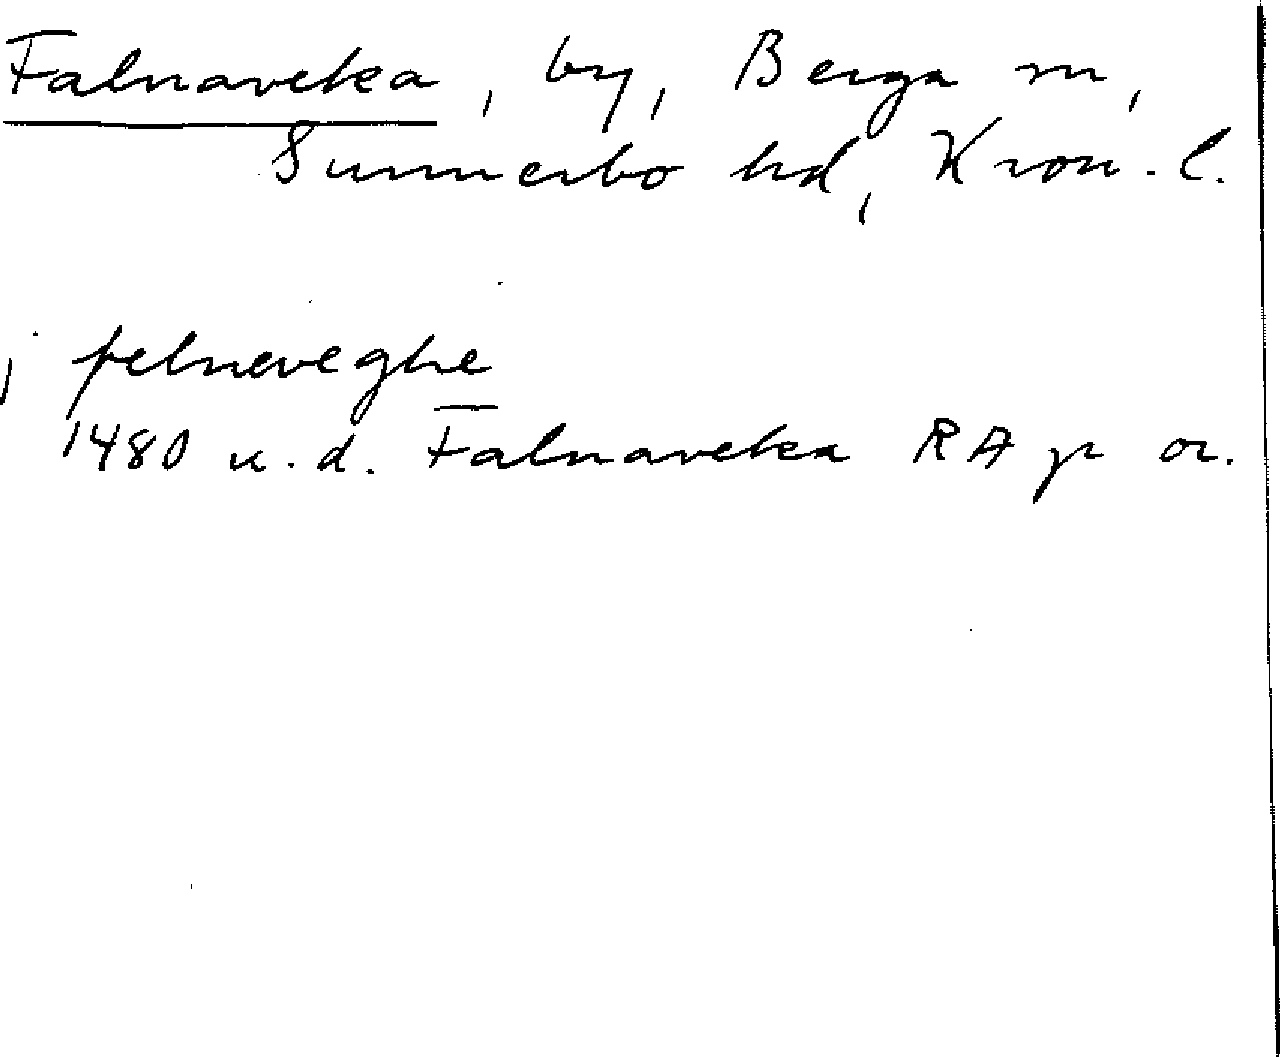 Falnaveka, by, Berga sn,
Sunnerbo hd, Kron. l.
j felneveghe
1480 u. d. Falnaveka RAp or.